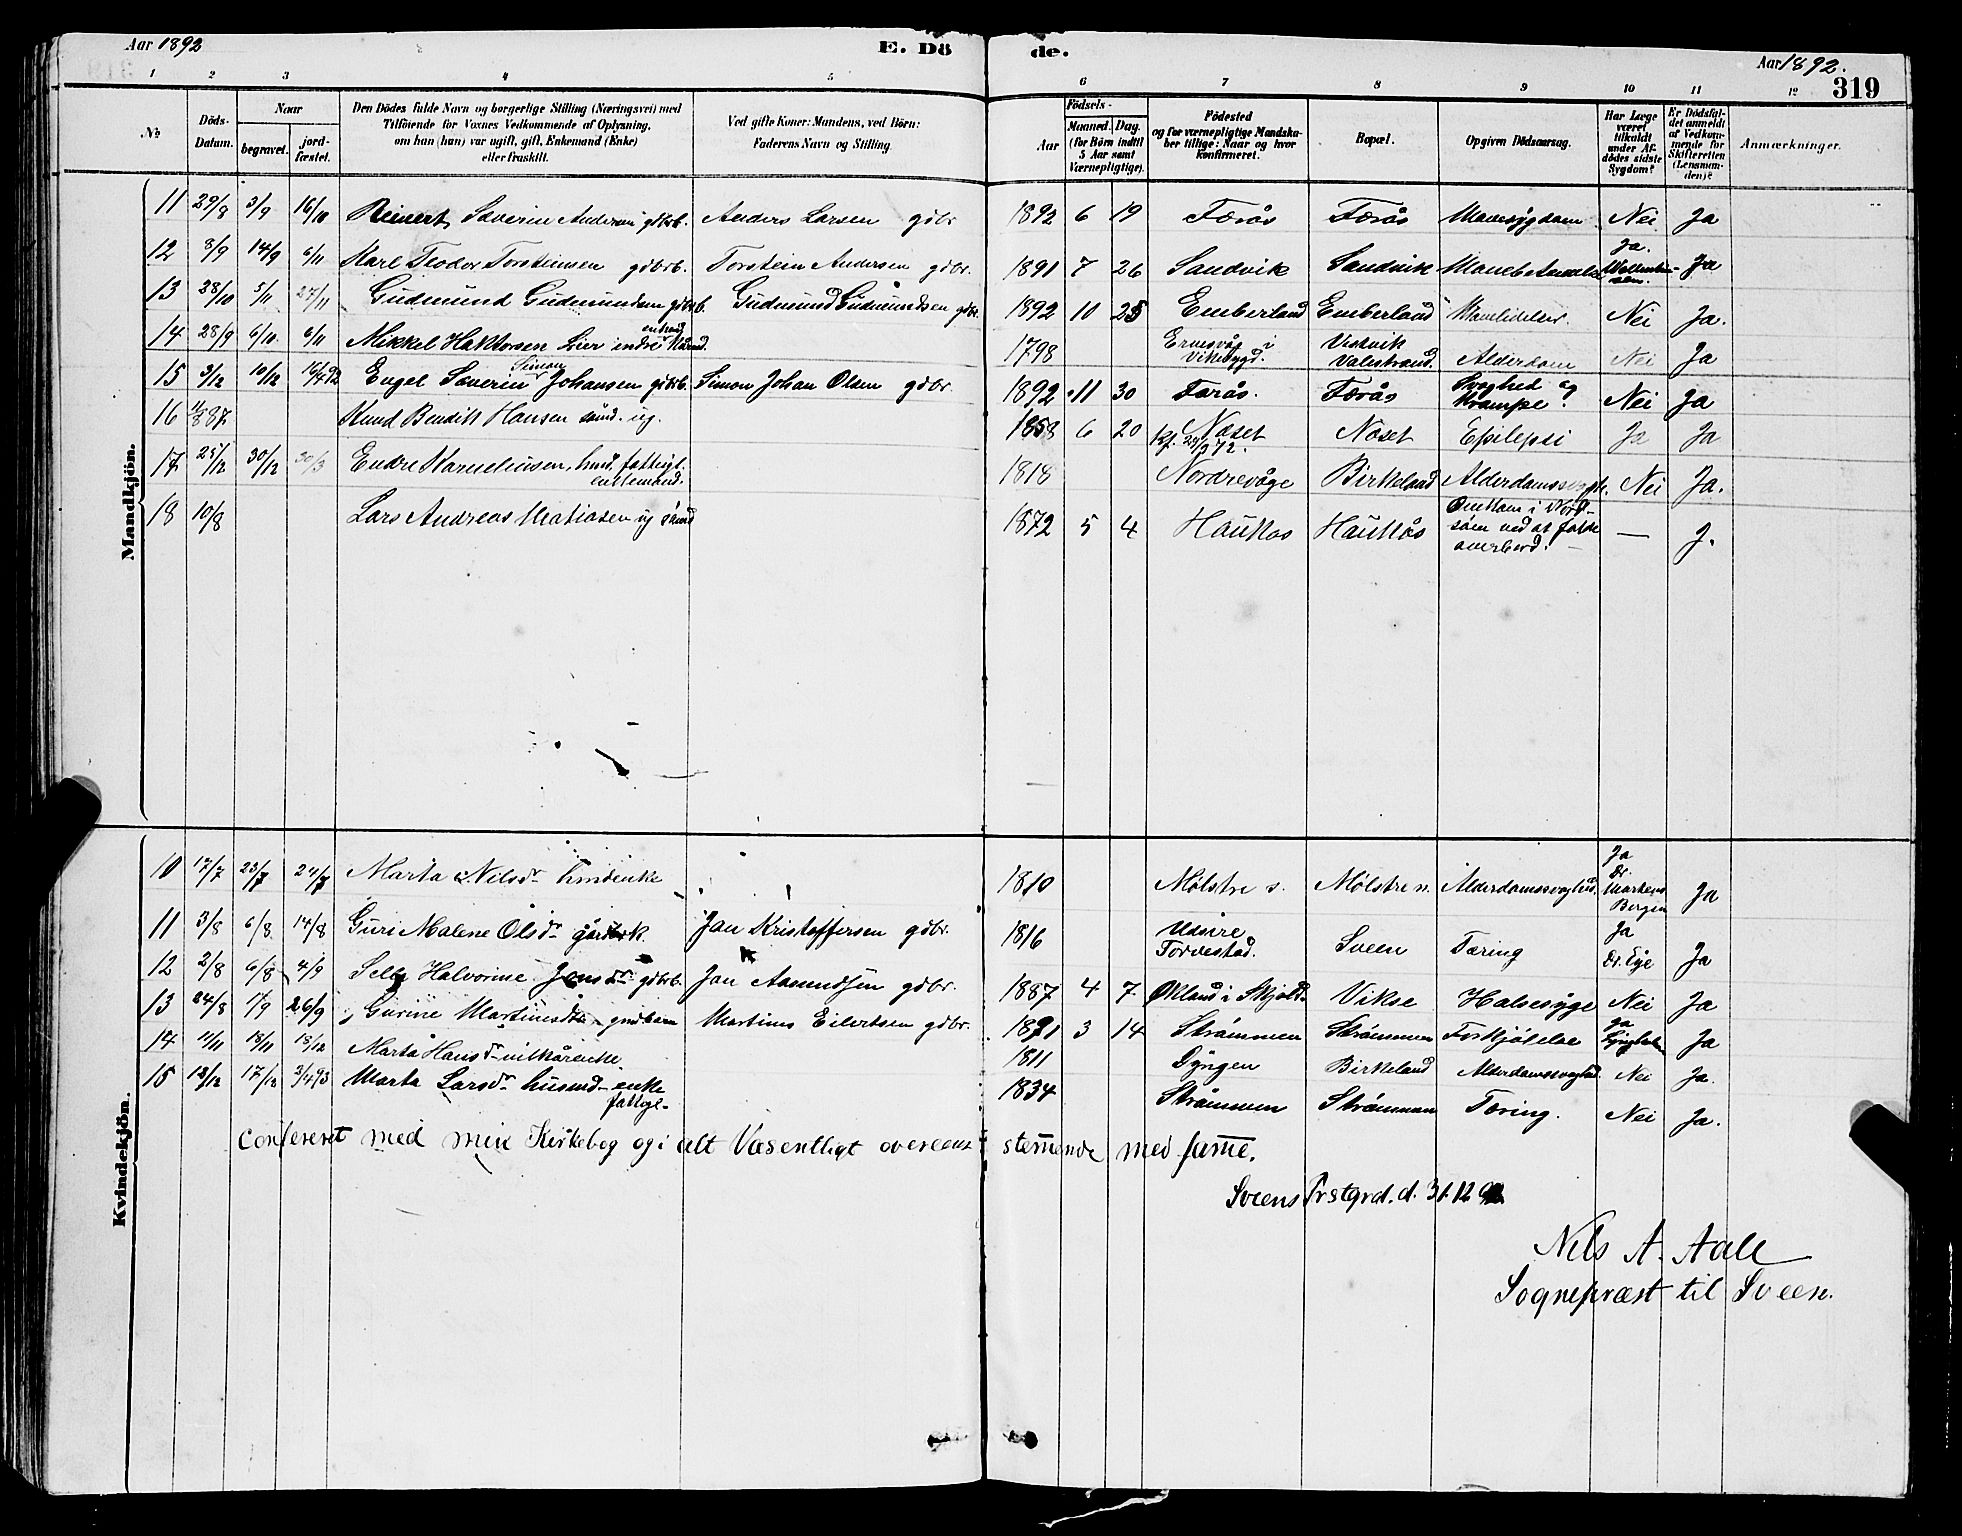 Aar 1892
E. Dö de.
Aar 1892.
319
1 2 3 4 5 6 7 8 9 10 11 12
No
Döds-Datum.
Naar
begravet.
jord-fæstet.
Den Dödes fulde Navn og borgerlige Stilling (Næringsvei) med
Tilföiende for Voxnes Vedkommende af Oplysning,
om han (hun) var ugift, gift, Enkemand (Enke)
eller fraskilt.
Ved gifte Koner: Mandens, ved Börn:
Faderens Navn og Stilling.
Födsels-
Aar
Maaned. Dag.
(for Börn indtil
5 Aar samt
Værnepligtige).
Födested
og for værnepligtige Mandska-
ber tillige: Naar og hvor
konfirmeret.
Bopæl.
Opgiven Dödsaarsag.
Har Læge
været
tilkaldt
under Af-
dödes sidste
Sygdom?
Er Dödsfal-
det anmeldt
af Vedkom-
mende for
Skifteretten
(Lensman-
den)?
Anmærkninger.
Mandkjön.
11 29/8 3/9 16/10 Reinert Severin Andersen gdbrb. Anders Larsen gdbr 1892 6 19 Færås Færås Mavesygdom Nei Ja
12 8/9 14/9 6/11 Karl Teodor Torsteinsen gdbrb. Torstein Andersen gdbr. 1891 7 26 Sandvik Sandvik Ja. Ja
13 28/10 5/11 27/11 Gudmund Gudmundsen gdbrb. Gudmund Gudmundsen gdbr. 1892 10 25 Emberland Emberland Mavelidelse. Nei Ja.
14 28/9 6/10 6/11 Mikkel Haktorsen Lier indre 1798 i Vikebygd. Valestrand. Alderdom Nei Ja
15 3/12 10/12 Engel Severin Simon Johansen gdbrb. Simon Johan Olsen gdbr. 1892 11 30 Færås. Færås Svaghed og Krampe? Nei Ja
16 11/8 87. Knud Bendik Hansen sönd. ug. 1858 6 20 Næset Kf. 29/9 72. Næset Epilepsi Ja Ja
17 25/12 30/12 30/3 Endre Korneliusen, hmd. fattigl. enkemand. 1818 Nordrevåge Birkeland Nei Ja.
18 10/8 Lars Andreas Matiasen ug 1872 5 4 Haukås Haukås Omkom i Nord-söen ved at falde overbord. — J.
Kvindekjön.
10 17/7 23/7 24/7 Marta Nilsdr. hmdenke 1810 Mølstre s. Mølstre n. Alderdomssvaghed. Ja Dr. Martens Bergen Ja
11 3/8 6/8 14/8 Guri Malene Olsdr. Jan Kristoffersen gdbr. 1816 Utsire Torvestad. Sveen Tæring Ja Dr. Eye Ja
12 2/8 6/8 4/9 Selly Halvorine Jansdr. gdbrb. Jan Aamundsen gdbr. 1887 4 7 Økland i Skjold. Vikse Halsesyge Nei Ja
13 24/8 1/9 26/9 Gurine Martinsdtr. Martins Eilertsen gdbr. 1891 3 14 Strømmen Strømmen Forkjølelse Ja Ja
14 11/11 18/11 18/12 Marta Hansdr. vilkårenke. 1811 Dyngen Birkeland Alderdomssvaghed. Nei Ja.
15 13/12 17/12 3/4 93 Marta Larsdr. husmd-enke fattigl. 1834 Strømmen Strømmen Tæring. Nei Ja.
confereret med min Kirkebog og i alt Væsentligt overeens stemende med same.
Sveens Prstgrd. d. 31.12 92
Nils A. Aall
Sognepræst til Sveen.